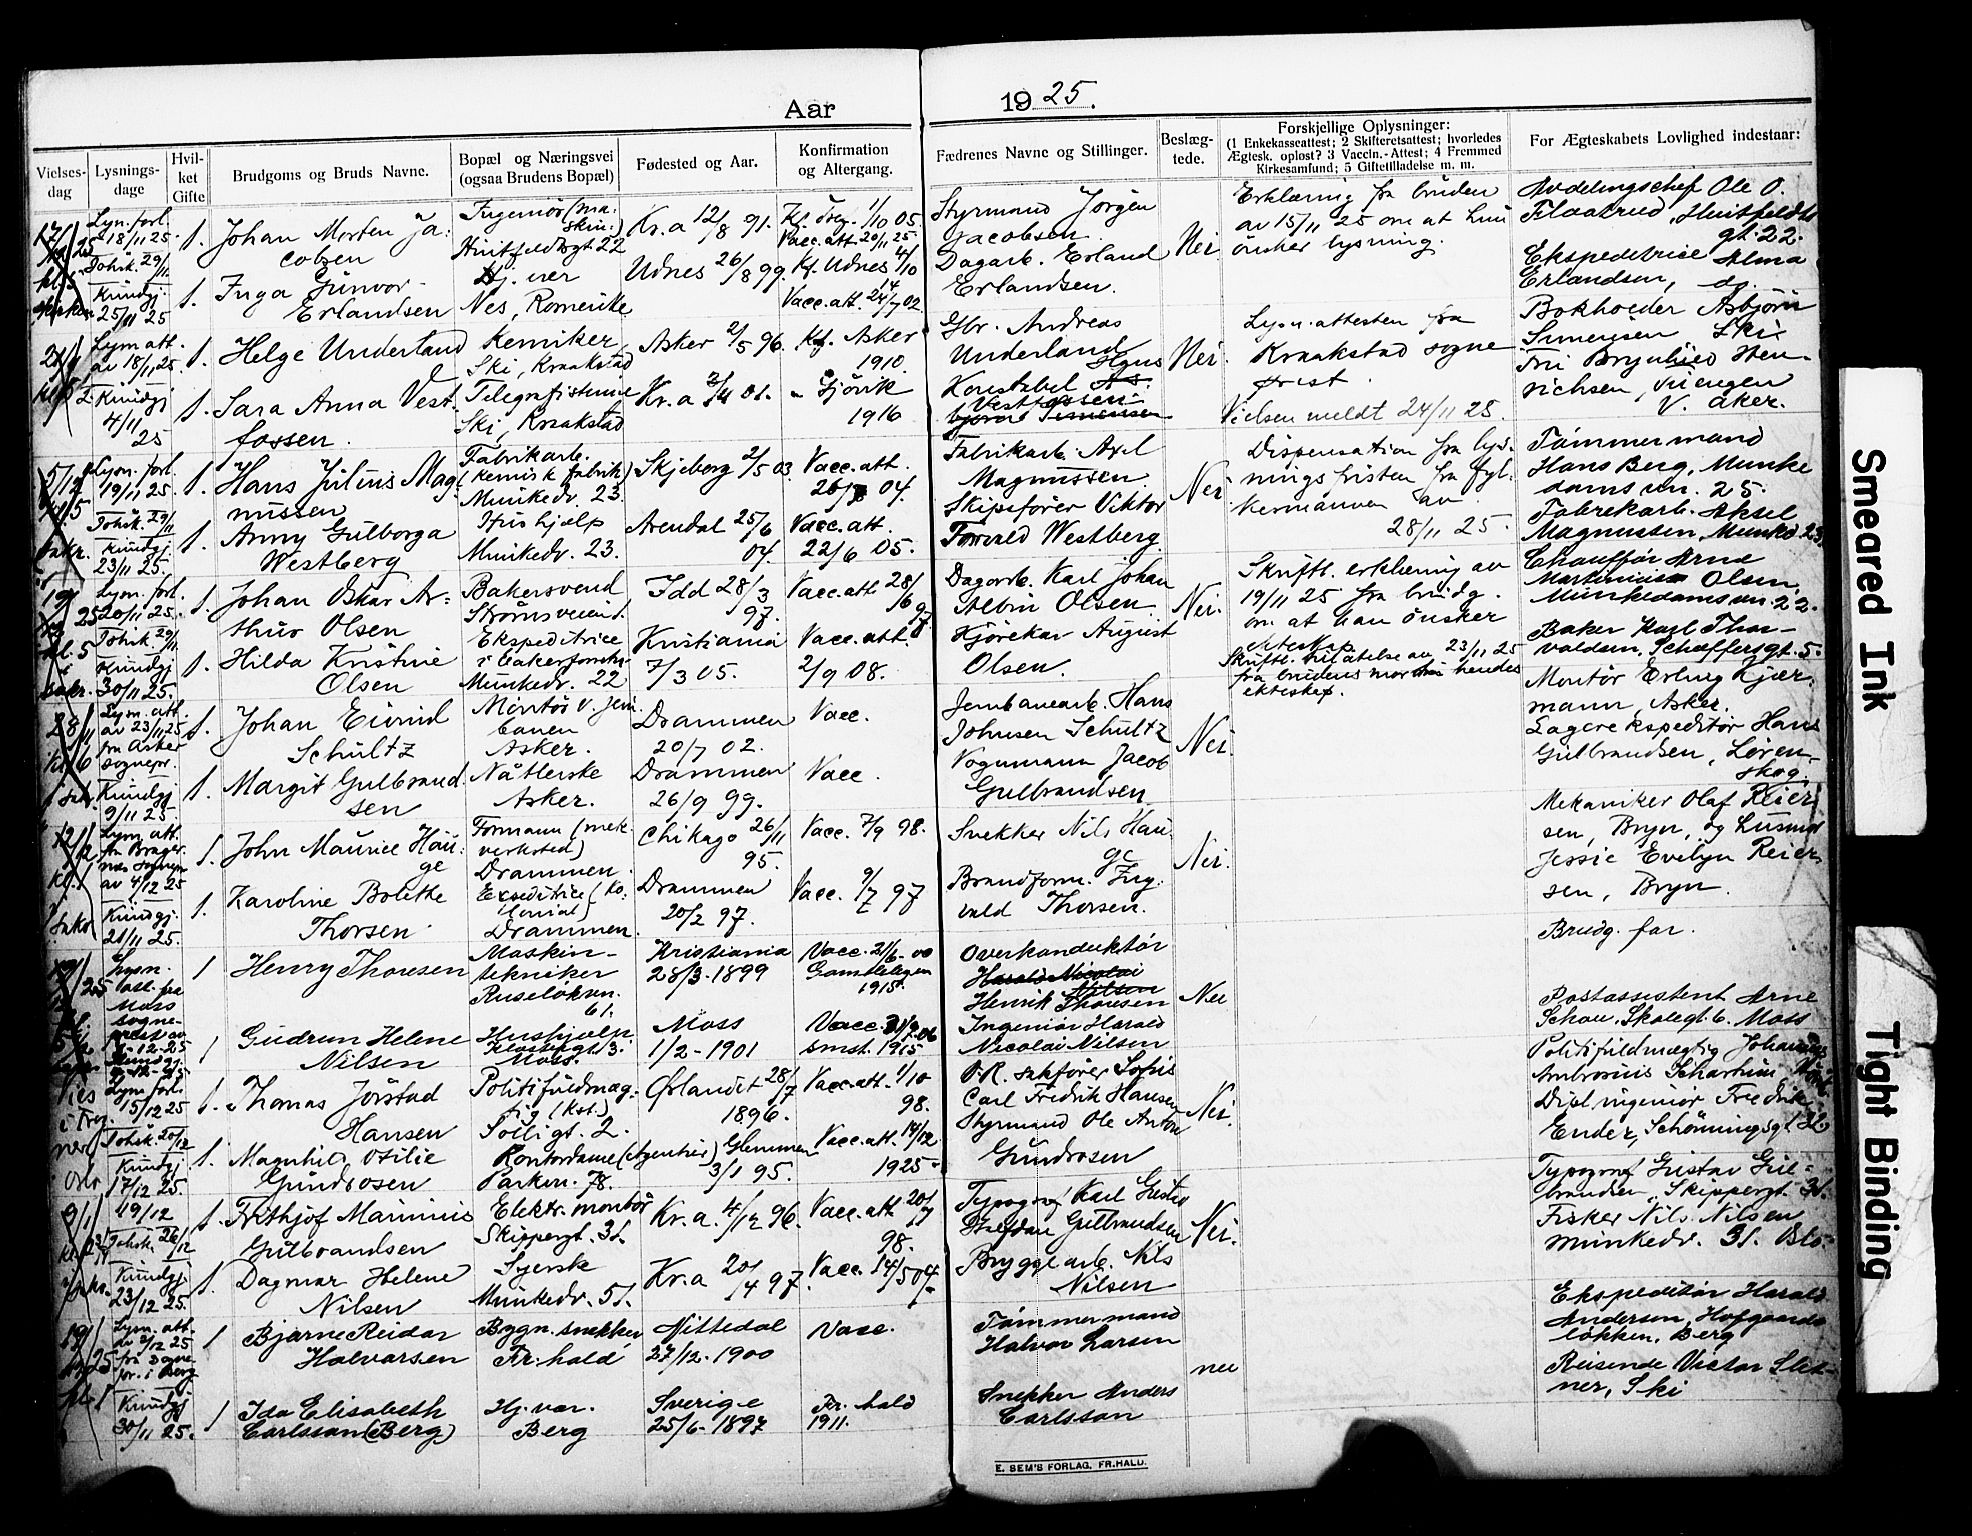 Aar 1925.
Vielses-
dag
Lysnings-
dage
Hvil-
ket
Gifte
Brudgoms og Bruds Navne.
Bopæl og Næringsvei
(ogsaa Brudens Bopæl)
Fødested og Aar.
Konfirmation
og Altergang.
Fædrenes Navne og Stillinger.
Beslæg-
tede.
Forskjellige Oplysninger:
(1 Enkekasseattest; 2 Skifteretsattest; hvorledes
Ægtesk. opløst? 3 Vaccin.-Attest; 4 Fremmed
Kirkesamfund; 5 Giftetilladelse m. m.
For Ægteskabets Lovlighed indestaar:
Lysn. forl.
18/11 25.
Tohsk. 29/11
Kundgj.
25/11 25
1.
Johan Morten Ja-
cobsen
Ingeniør (ma-
skin.)
Huitfeldtsgt 22
Kr.a 12/8 91.
Kf. Treg. 1/10 05
Vacc.att. 20/11 25.
Styrmand Jørgen
Jacobsen.
Nei
Erklæring fra bruden
av 15/11 25 om at hun
ønsker lysning.
Avdelingschef Ole O.
Flaatrud, Huitfeldts
gt. 22.
1.
Inga Gunvor
Erlandsen
Hj. vær
Nes, Romerike
Udnes 26/8 99.
Kf. Udnes 4/10
14
Vacc.att. 24/7 02
Dagarb. Erland
Erlandsen.
Ekspeditrice Alma
Erlandsen, do.
Lysn att.
av 18/11 25.
Kundgj
4/11
25
1.
Helge Underland
Kemiker,
Ski, Kraakstad
Asker 2/5 96.
Kf. Asker
1910.
Gbr. Andreas
Underland
Nei.
Lysn. attesten fra
Kraakstad sogne
prest.
Vielsen meldt 24/11 25.
Bokholder Asbjørn
Simensen Ski
1.
Sara Anna Vest-
fossen.
Telegrafistinne
Ski, Kraakstad
Kr.a 01.
" Gjøvik
1916
Konstabel
Vestfossen
Fru Brynhild Hen-
richsen,
V. Aker.
5/12
Lysn. forl.
19/11 25.
Tohsk. 29/11
Kundgj
23/11 25.
1.
Hans Julius Mag-
nussen
Fabrikarb.
(kemisk fabrik)
Munkedv. 23.
Skjeberg 2/5 03
Vacc. att.
04.
Fabrikarb. Axel
Magnussen.
Nei
Dispensation fra lys-
ningsfristen fra fyl-
kesmannen av
28/11 25.
Tømmermand
Hans Berg, Munke
damsvn. 25.
1.
Anny Gulborga
Westberg
Hushjælp
Munkedv. 23.
Arendal 25/6
04.
Vacc. att.
22/6 05.
Skipsfører Viktor
Torvald Westberg.
Fabrikarb. Aksel
Magnussen, Munkd 23.
Lysn. forl.
20/11 25.
Tohsk. 29/11.
Kundgj
30/11 25.
1.
Johan Oskar Ar-
thur Olsen
Bakersvend
Strømsveien 1.
Idd 28/3
97.
Vacc.att 28/6
97
Dagarb. Karl Johan
Albin Olsen.
Nei.
Skriftl. erklæring av
19/11 25 fra brudg.
om at han ønsker
Skriftl. tillatelse av 23/11 25
fra brudens mor til hendes
ekteskap.
Chauffør Arne
Martinius Olsen,
Munkedamsvn. 22.
1.
Hilda Kristine
Olsen
Ekspeditrice
i bakerforretn.
Munkedv. 22
Kristiania
7/3 05.
Vacc. att.
2/9 08.
Kjørekar August
Olsen.
Baker Karl Thor-
valdsen, Schæffersgt. 5.
28/11
Lysn. att.
av 23/11 25
fra Asker
sognepr.
Kundgj
9/11 25.
1.
Johan Eivind
Schultz
Montør v. jern
banen
Asker.
Drammen
20/7 02.
Vacc.
Jernbanearb. Hans
Johnsen Schultz
Nei.
Montør Erling Kjær-
mann, Asker.
1.
Margit Gulbrand-
sen
Nåtlerske
Asker.
Drammen
26/9 99.
Vacc.
Vognmann Jacob
Gulbrandsen
Lagerekspeditør Hans
Gulbrandsen, Løren-
skog.
12/12
Lysn. att.
fra Brager
nes sognepr
av 4/12 25
Kundgj.
21/11 25.
1.
John Maurice Hau-
ge
Formann (mek.
verksted)
Drammen.
Chikago 26/11
95.
Vacc. 7/9 98.
Snekker Nils Hau-
ge
Nei.
Mekaniker Olaf Reier
sen, Bryn, og hustrud
Jessie Evelyn Reier
sen, Bryn.
1.
Karoline Bolette
Thorsen
Expeditrice (ko-
lonial)
Drammen.
Drammen
20/2 97.
Vacc. 9/7 97
Brandform. Ing-
vald Thorsen.
Brudg. far.
Lysn.
att. fra
Moss
sogne-
prest av
1
Henry Thoresen
Maskin-
tekniker
Ruseløkvn.
61.
Kristiania
28/3-1899
Vacc. 21/6-00
Gamlebyen
1915.
Overkonduktør
Harald Nicolai
Nilsen
Henrik Thoresen
Nei
Postassistent Arne
Schou, Skolegt. 6. Moss
1
Gudrun Helene
Nilsen
Hushjælp
3.
Moss.
Moss
1/2-1901
Vacc. 06
smst. 1915
Ingeniør Harald
Nicolai Nilsen
Politifuldmægtig Johannes
Ambrosius Schartum
Vies
i Treg-
ner
Oslo
Lysn forl.
15/12 25
Tohsk. 20/12
Kundgj
17/12 25.
1.
Thomas Jørstad
Hansen
Politifuldmæg-
tig (kst.)
Solligt. 2.
Ørlandet 28/7
1896.
Vacc.-att. 1/10
98.
O.R. sakfører Sofus
Carl Fredrik Hansen
Nei.
Dipl. ingeniør Fredrik
Ender, Schønningsgt 32
1.
Magnhild Otilie
Gundrosen
Kontordame (Agentur)
Parkvn. 78.
Glemmen
3/1 95.
Vacc.att. 14/12
1925.
Styrmand Ole Anton
Gundrosen
9/1
19/12
Tohsk. 26/12
Kundgj
23/12 25.
1.
Frithjof Marinius
Gulbrandsen
Elektr. montør
Skippergt. 31.
Kr.a. 4/12 96.
Vacc.att 20/7
98.
Typograf Karl Gustav
Gulbrandsen
Nei.
Typograf Gustav Gul-
brandsen, Skippergt 31.
1.
Dagmar Helene
Nilsen
Syerske
Munkedv. 51.
Kr.a 20/4 97.
Vacc. 14/5 04.
Bryggearb. Nils
Nilsen
Fisker Nils Nilsen
Munkedv. 51. Oslo.
19/1
Lysn. att.
av 2/12 25
fra Sogne-
pr. i Berg
Kundgj
30/11 25.
1
Bjarne Reidar
Halvarsen
Bygn. snekker
Fr. hald
Nittedal
27/12-1900
Vacc.
Tømmermand
Halvor Larsen
nei
Ekspeditør Harald
Andersen, Hafgaards
løkken, Berg
1
Ida Elisabeth
Carlsson (Berg)
Hj. vær.
Berg
Sverige
25/6-1897
Fr. hald
1911.
Snekker Anders
Carlsson
Reisende Victor Slet-
ner, Ski
E. SEM'S FORLAG, FR.HALD.
Smeared Ink
Tight Binding